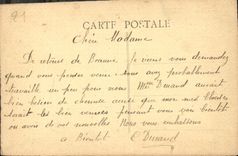 91
CARTE POSTALE
Chère Madame
De retour de Beaune je viens vous demander
quand vous pensez venir vous avez probablement
travaillé un peu pour nous Mme Durand aurait
bien besoin de chemise
avant les bien venues pensant vous voir bientôt
ou avoir de vos nouvelles Nous vous embrassons
à Bientôt E Durand